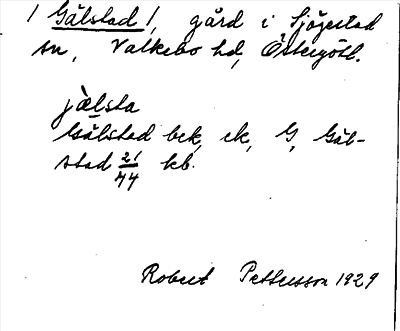 / Gälstad /, gård i Sjögestad
sn, Valkebo hd, Östergötl.
jæ̀lsta
Gälstad bek, ek, G, Gäl-
stad 21/44 kb.
Robert Pettersson 1929